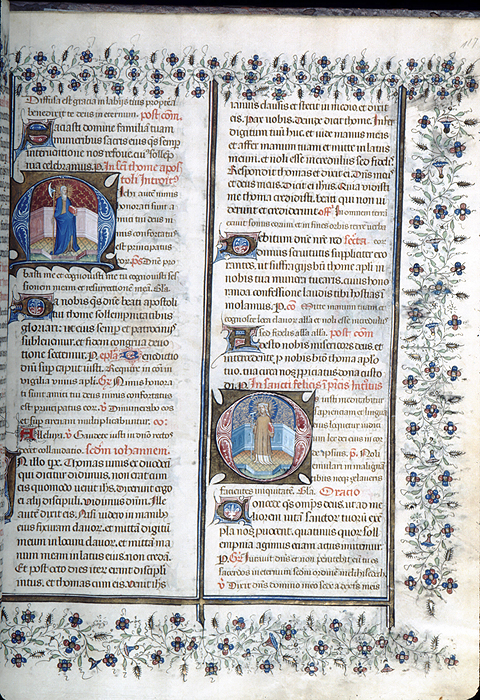 Diffusa est gracia in labiis tuis propterea
benedixit te deus in eternum. post com.
Saciasti domine familiam tuam
muneribus sacris eius qs semper
interventione nos refove cuius sollep
nia celebramus. p. In sci thome apos
toli Introitus
Michi autem nimis
honorati sunt a
mici tui deus ni
mis confortatus
est principatus
eor. ps. Dne pro
basti me et cognovisti me tu cognovisti ses
sionem meam et resurrectionem mea. Gla.
Da nobis qs dne beati apostoli
tui thome sollempnitatibus
gloriari: ut eius semper et patrociniis
sublevemur. et fidem congrua devo
tione sectemur. p. epla Benedictio
dni super caput iusti. Require in com in
vigilia unius apli. Gr. Nimis honora
ti sunt amici tui deus nimis confortatus
est principatus eor. v. Dinumerabo eos
et super arenam multiplicabuntur.
Alleluya. v. Gaudete iusti in dno rectos
decet collaudatio. Sedm iohannem.
In illo tpr. Thomas unus ex duodecim
qui dicitur didimus. non erat cum
eis quando venit ihs. Dixerunt ergo
ei alii discipuli. Vidimus dnm. Ille
autem dixit eis. Nisi videro in manibus
eius fixuram clavor. et mittam digitum
meum in locum clavor. et mittam ma
num meam in latus eius non credam.
Et post octo dies iterum erant discipuli
intus. et thomas cum eis. venit ihs
ianuis clausis et stetit in medio et dixit
eis. Pax vobis. deinde dicit thome. Infer
digitum tuum huc. et vide manus meas
et affer manum tuam et mitte in latus
meum. et noli esse incredulus sed fidelis.
Respondit thomas et dixit ei. Dns meus
et deus meus. Dicit ei ihs. Quia vidisti
me thoma credidisti. beati qui non vi
derunt et crediderunt. off. In omnem terra
exivit sonus eorum et in fines orbis terre verba
eor.
Debitum dne nre reddentes. secreta
domine servitutis suppliciter exo
ramus. ut suffragiis beati thome apli in
nobis tua munera tuearis. cuius hono
randa confessione laudis tibi hostias im
molamus. p. co. Mitte manum tuam et
cognosce loca clavor. alla. et noli esse incredulus
sed fidelis alla alla. post com
Adesto nobis misericors deus. et
intercedente pro nobis beato thoma aplo
tuo. tua circa nos propiciatus dona custo
di. p. In sancti felicis in pincis Introitus
Os iusti meditabitur
sapienciam et lingua
eius loquetur iudiciu
lex dei eius in cor
de ipsius. p. Noli
emulari in maligna
tibus neque zelaveris
facientes iniquitatem. Gla. Oratio
Concede qs omps deus. ut ad me
liorem vitam sanctor tuorum exe
pla nos provocent. quatinus quor soll
empnia agimus eciam actus imitemur.
p. Gr. Iuravit dns et non penitebit eum tu es
sacerdos in eternum secundum ordinem melchisedech.
v. Dixit dns domino meo sede a dextris meis